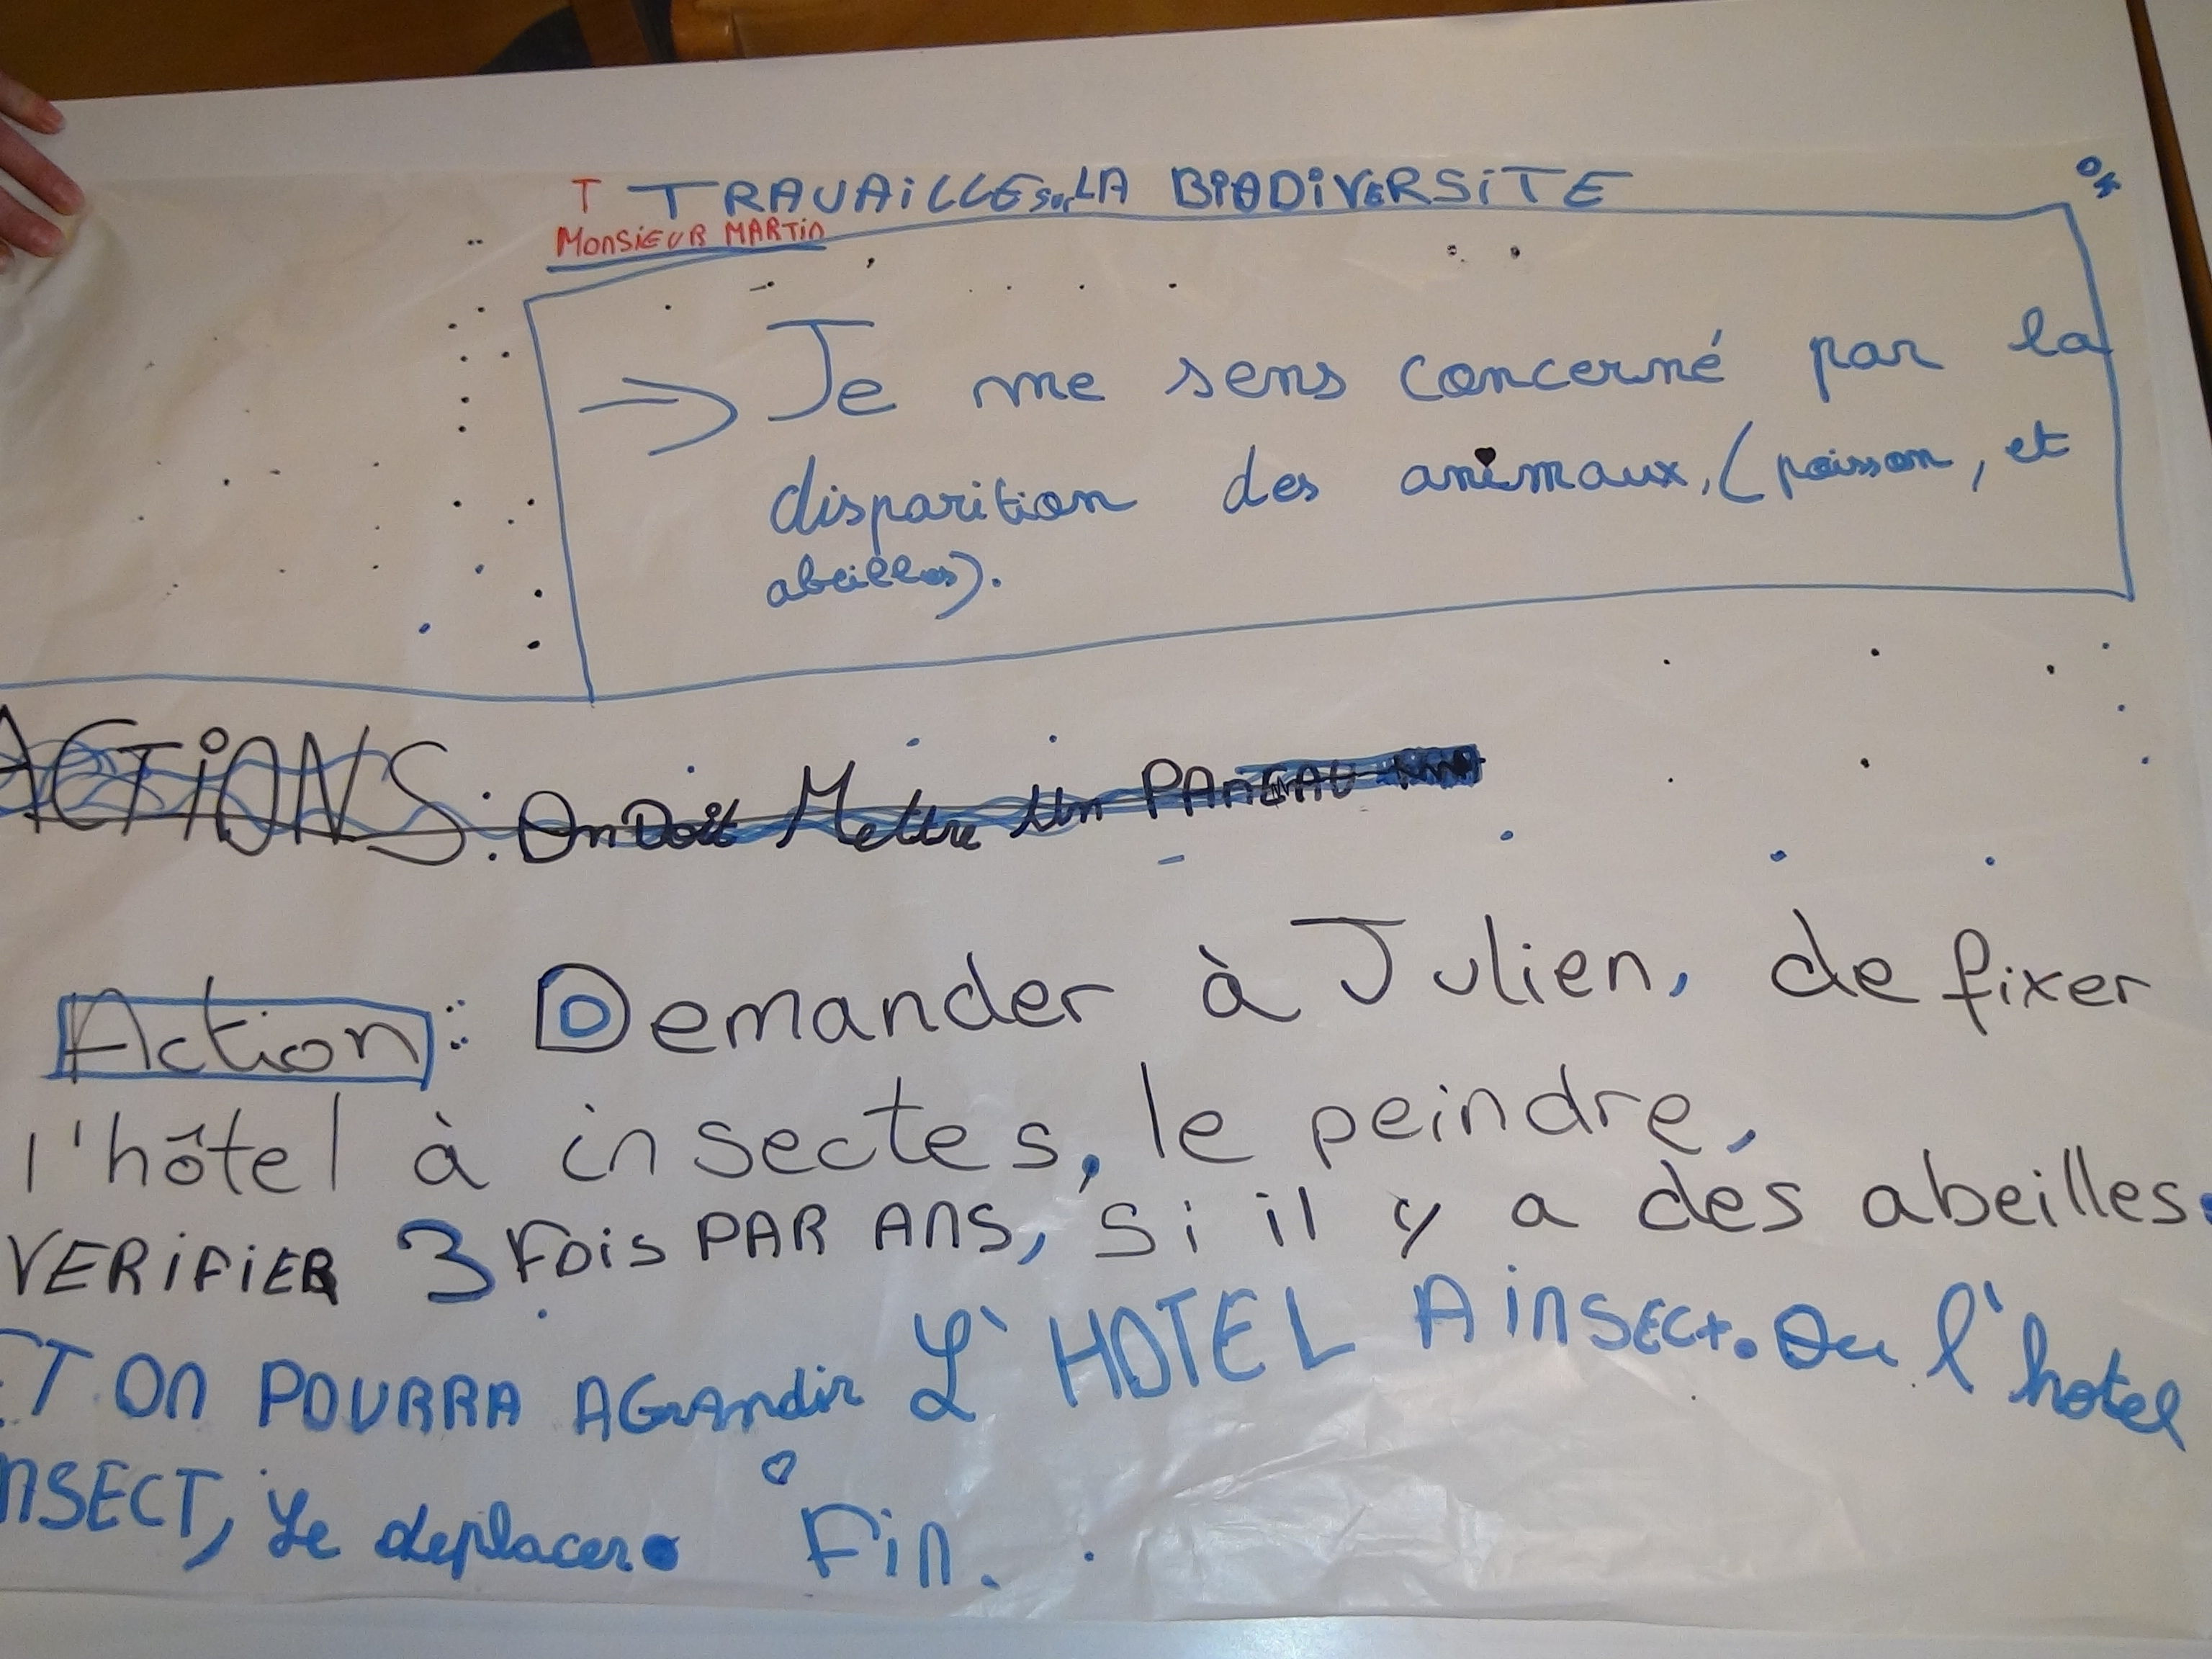 T TRAVAILLE sur LA BIODIVERSITE
OK
MONSIEUR MARTIN
⇒ Je me sens concerné par la
disparition des animaux, (poisson, et
abeilles).
ACTIONS : On Doit Mettre Un PANEAU
Action : Demander à Julien, de fixer
l'hôtel à insectes, le peindre,
VERIFIER 3 Fois PAR ANS, si il y a des abeilles.
ET ON POURRA AGrAndir L'HOTEL A INSECt. Ou l'hotel
INSECT, Le deplacer.
Fin.